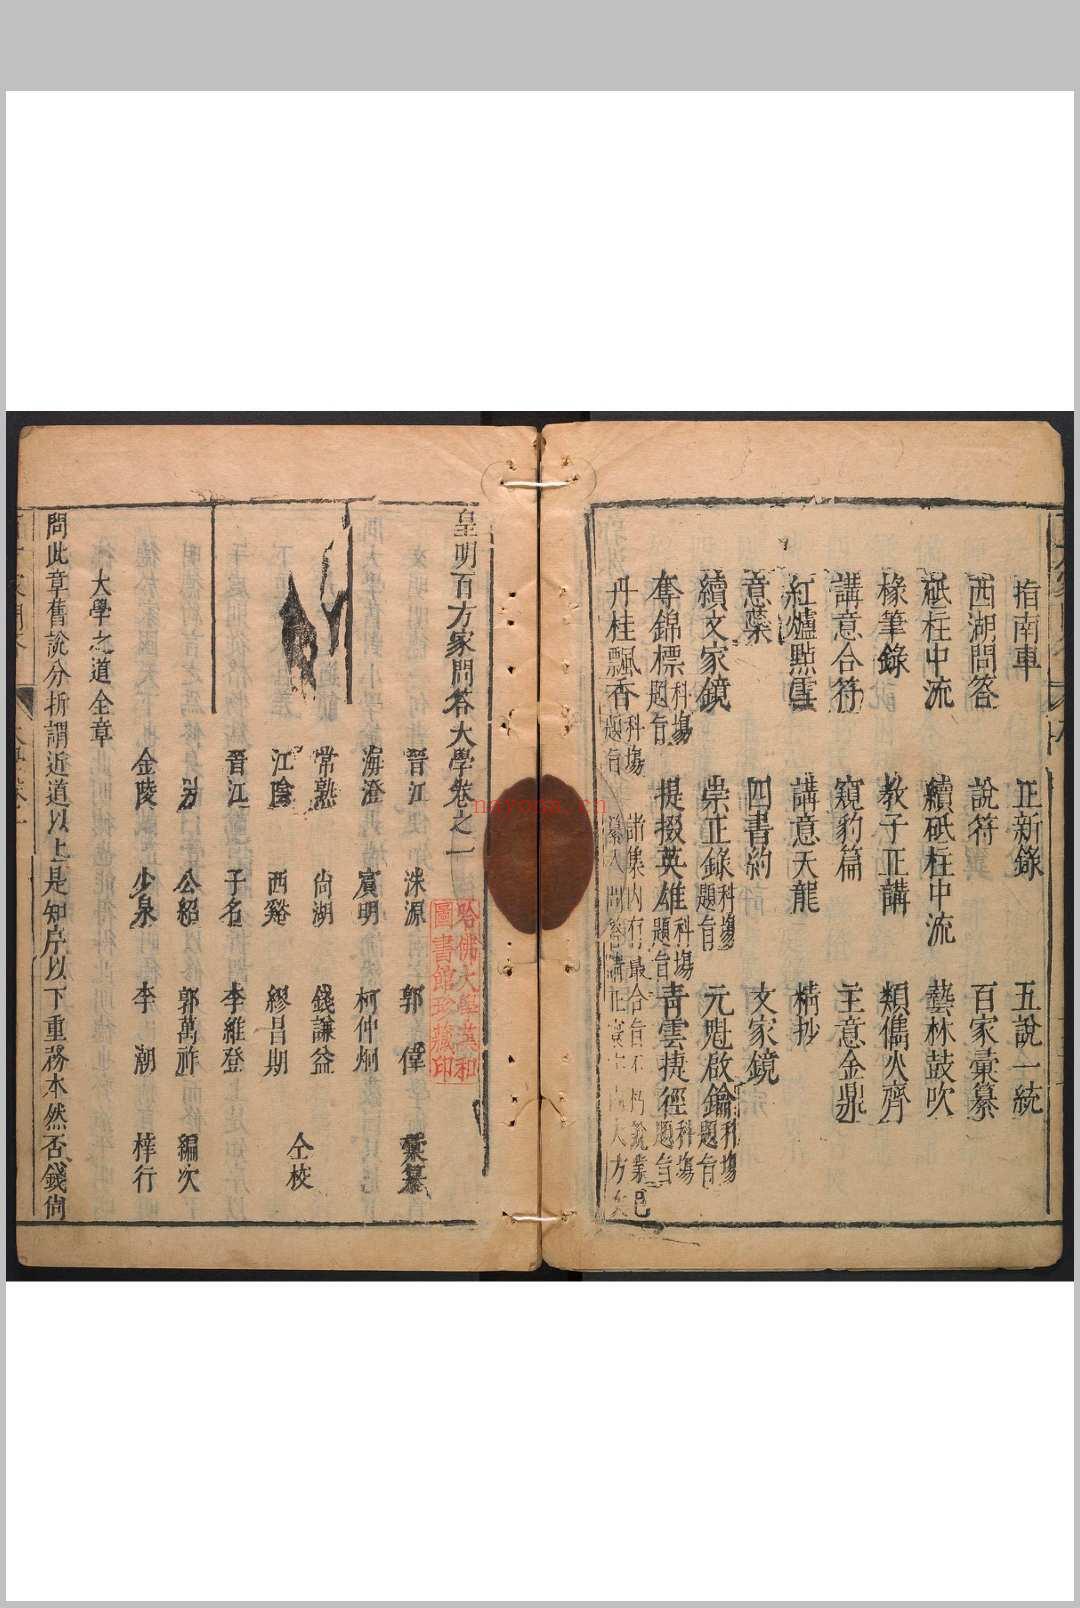 指南車 正新錄 五說一統
西湖問答 說符 百家彙纂
砥柱中流 續砥柱中流 藝林鼓吹
椽筆錄 教子正講 類儁火齊
講意合符 窺豹篇 主意金鼎
紅爐點雪 講意天龍 精抄
意藥 四書約 文家鏡
續文家鏡 崇正錄科塲題旨 元魁啟鑰科塲題旨
奪錦標科塲題旨 提掇英雄科塲題旨 青雲捷徑科塲題旨
丹桂飄香科塲題旨
皇明百方家問答大學卷之一
晉江 洙源 郭偉 彙纂
海澄 賓明 柯仲炯
常熟 尙湖 錢謙益
江陰 西谿 繆昌期 仝校
晉江 子名 李維登
公紹 郭萬祚 編次
金陵 少泉 李潮 梓行
大學之道全章
問此章舊說分折謂近道以上是知序以下重務本然否錢尙
哈佛大學漢和
圖書館珍藏印
nayona.cn